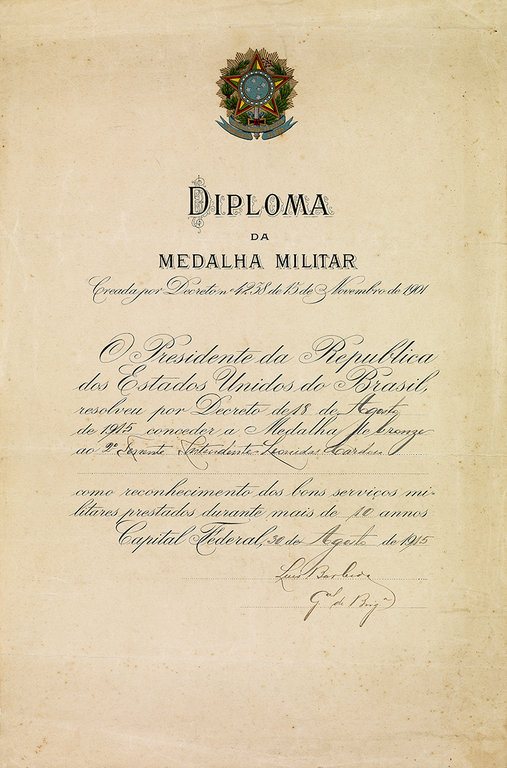 DIPLOMA
DA
MEDALHA MILITAR
Creada por Decreto nº 4238 de 15 de Novembro de 1901
O Presidente da Republica
dos Estados Unidos do Brasil,
resolveu por Decreto de 18 de Agosto
de 1915 conceder a Medalha de bronze
ao 2º Tenente Intendente Leonidas Cardoso
como reconhecimento dos bons serviços mi-
litares prestados durante mais de 10 annos
Capital Federal, 30 de Agosto de 1915
Luis Barbedo
Gal de Brigª